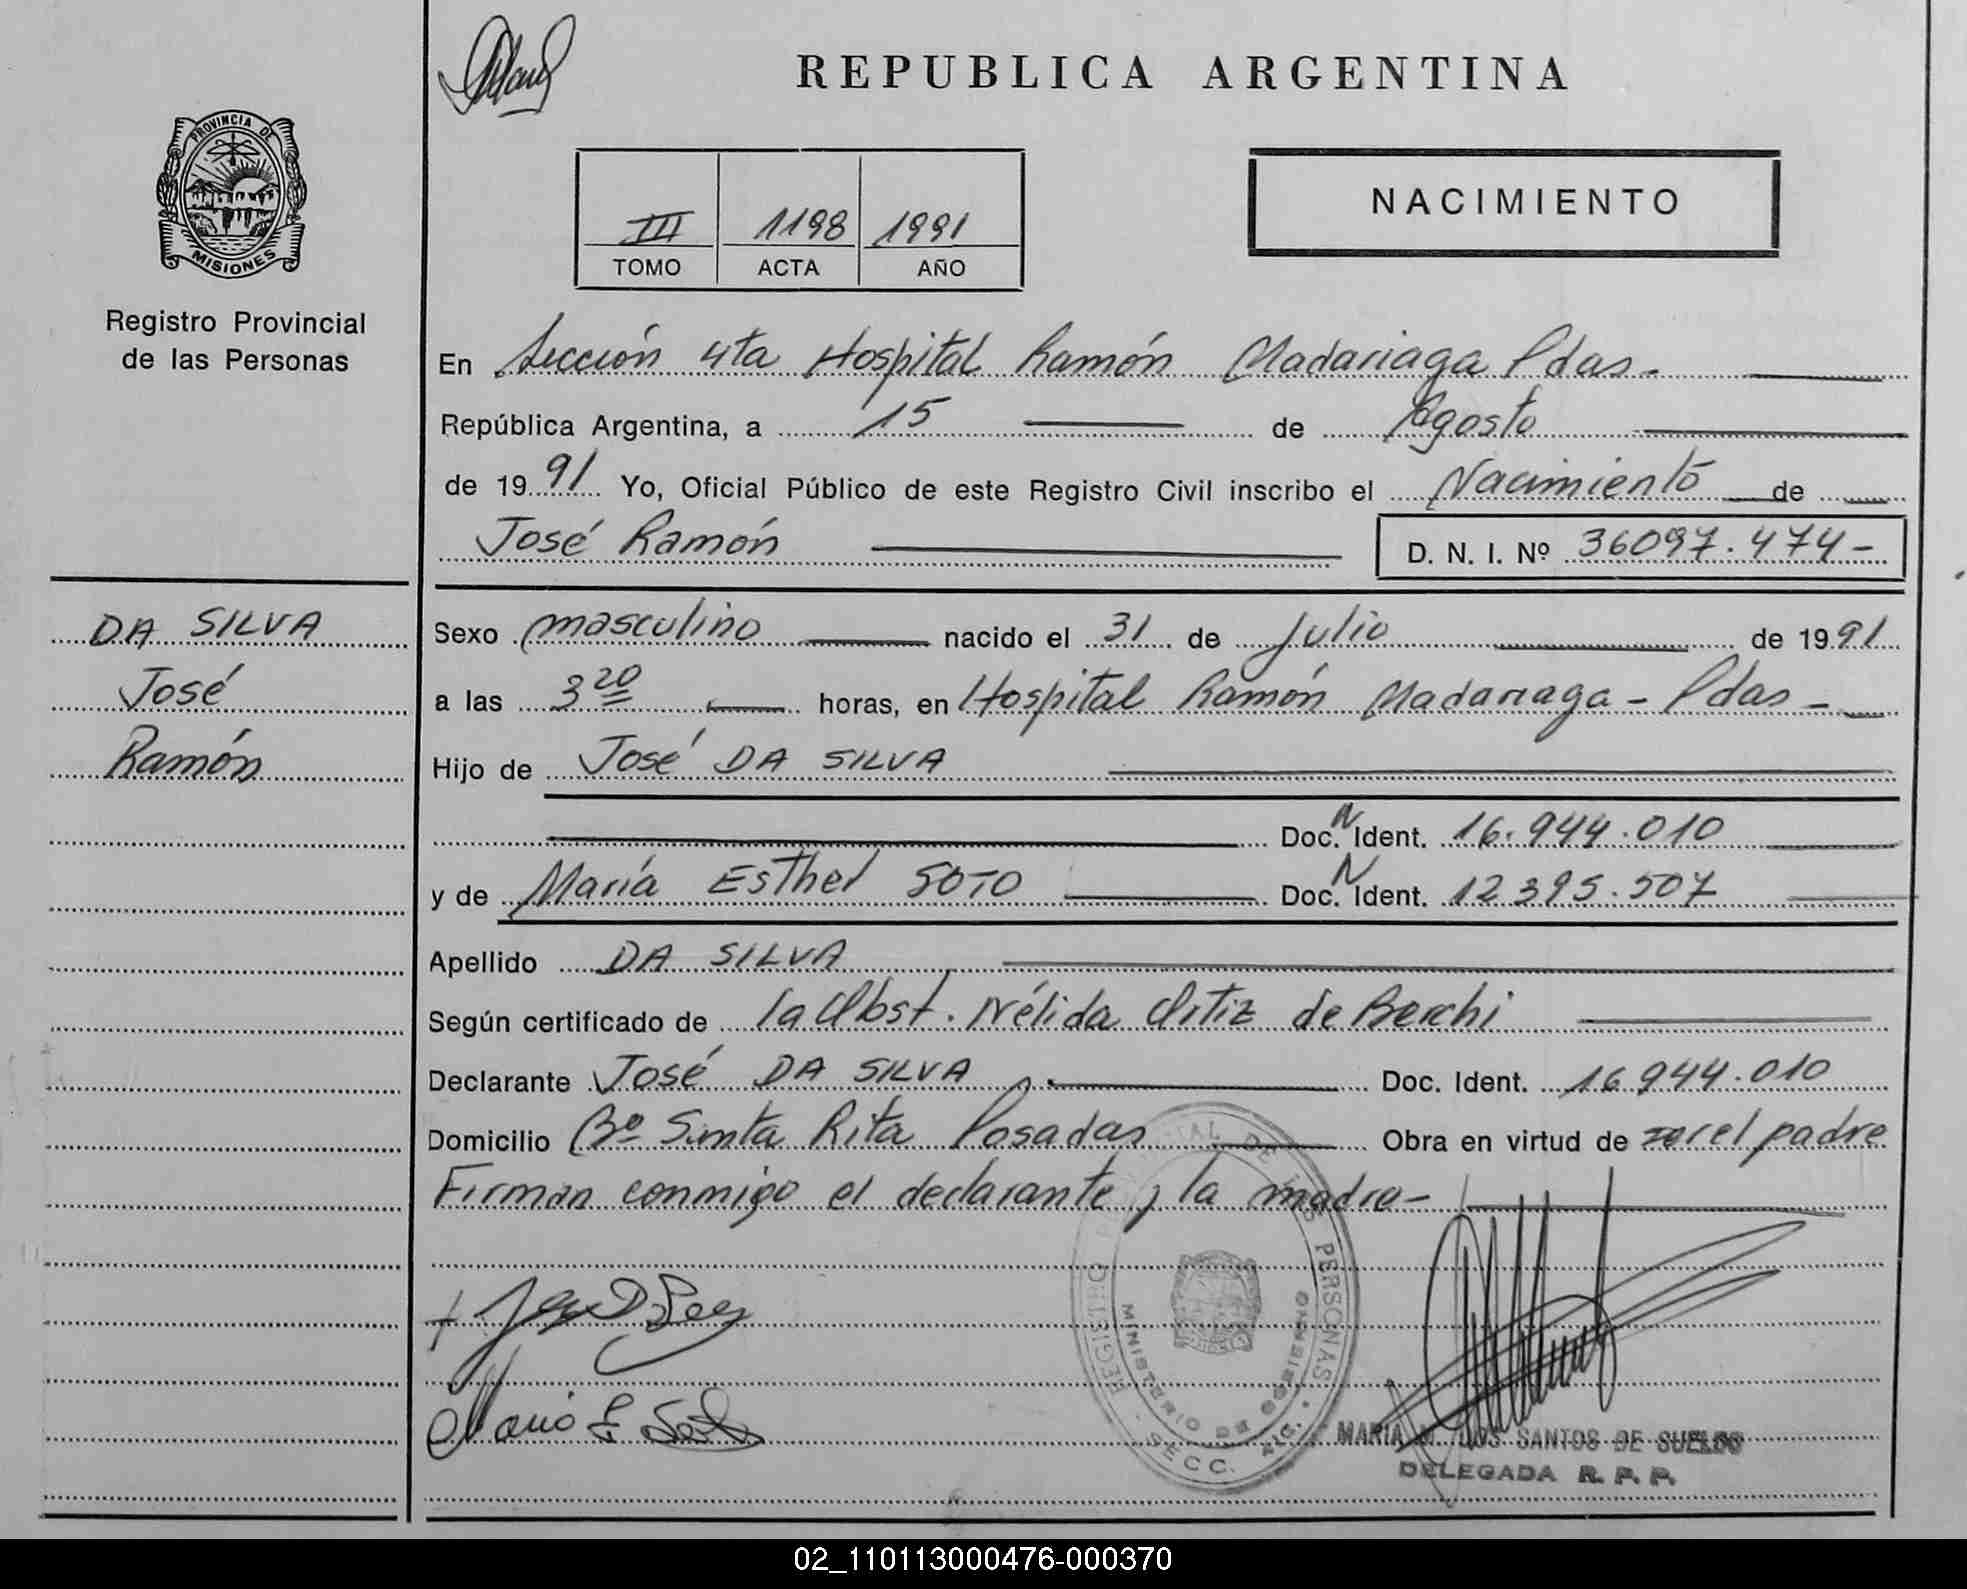 REPUBLICA ARGENTINA
PROVINCIA DE
MISIONES
Registro Provincial
de las Personas
III 1198 1991
TOMO ACTA AÑO
NACIMIENTO
En Sección 4ta Hospital Ramón Madariaga Pdas.
República Argentina, a 15 de Agosto
de 1991 Yo, Oficial Público de este Registro Civil inscribo el Nacimiento de
José Ramón D. N. I. Nº 36097.474-
DA SILVA
José
Ramón
Sexo masculino nacido el 31 de Julio de 1991
a las 3 20 horas, en Hospital Ramón Madariaga - Pdas -
Hijo de José DA SILVA
Doc. N Ident. 16.944.010
y de María Esther SOTO Doc. N Ident. 12395.507
Apellido DA SILVA
Según certificado de la Obst. Nélida Ortiz de Berchi
Declarante José DA SILVA Doc. Ident. 16944.010
Domicilio Bº Santa Rita Posadas Obra en virtud de ser el padre
Firman conmigo el declarante y la madre-
REGISTRO PROVINCIAL DE LAS PERSONAS
MINISTERIO DE GOBIERNO
SECC.
Maria E Soto
MARIA DOS SANTOS DE SUELDO
DELEGADA R. P. P.
02_110113000476-000370